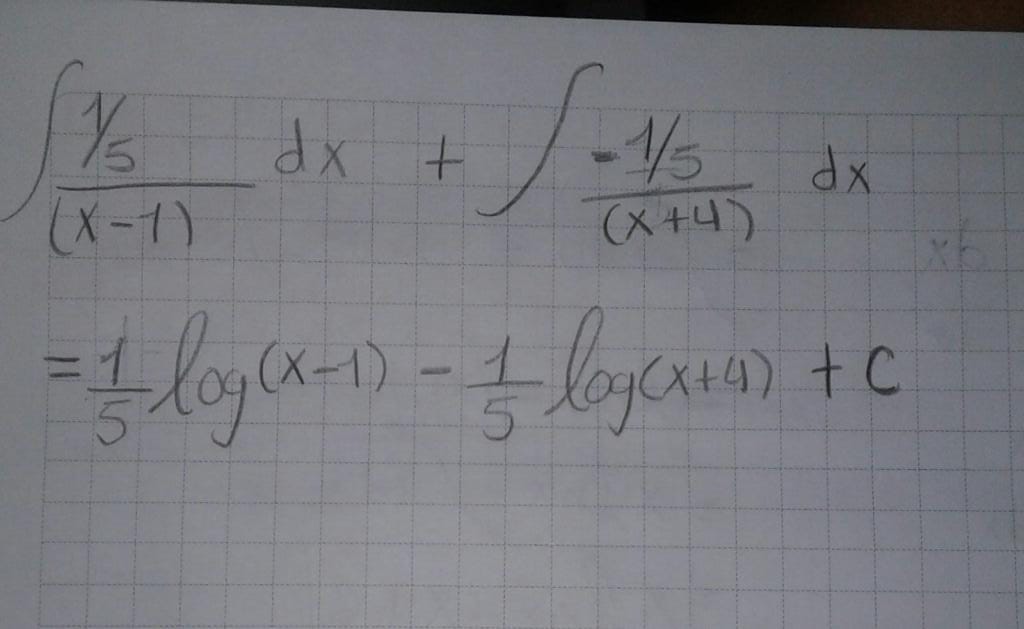 ∫ (1/5)/(x-1) dx + ∫ (-1/5)/(x+4) dx
= 1/5 log(x-1) - 1/5 log(x+4) + C